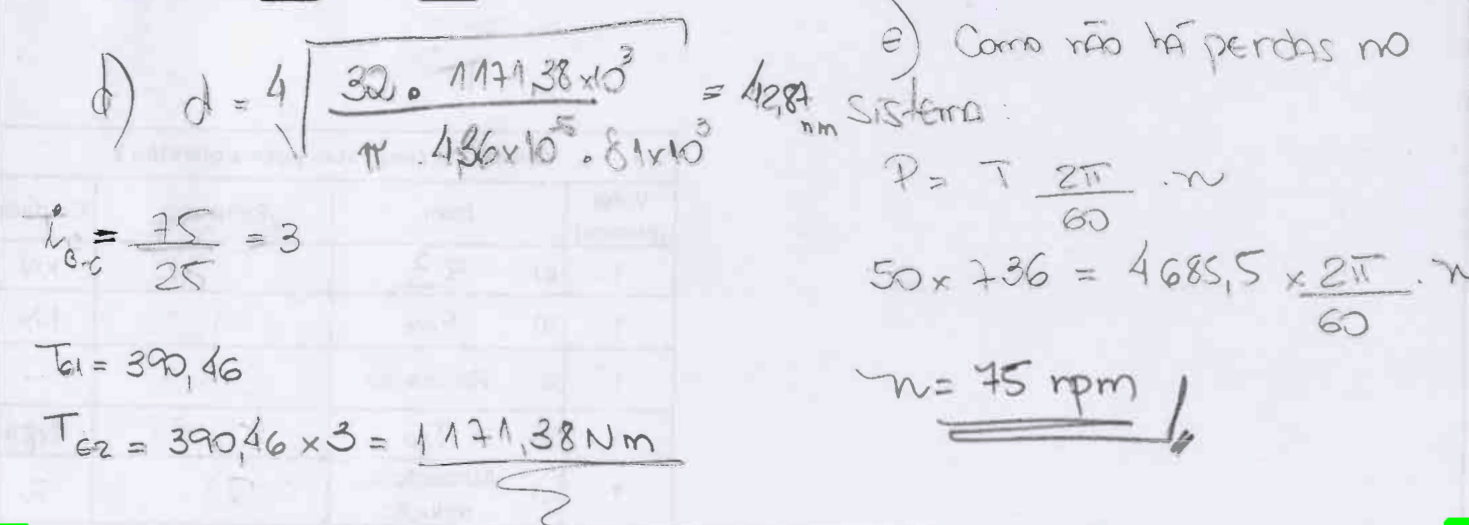 d) d = 4√(32 • 1171,38 x10³ / π . 4,36x10⁻⁵ . 81x10³) = 42,87 mm
i_B-C = 75/25 = 3
T_E1 = 390,46
T_E2 = 390,46 x 3 = 1171,38 Nm
e) Como não há perdas no
sistema:
P = T 2π/60 . n
50 x 736 = 4685,5 x 2π/60 . n
n = 75 rpm